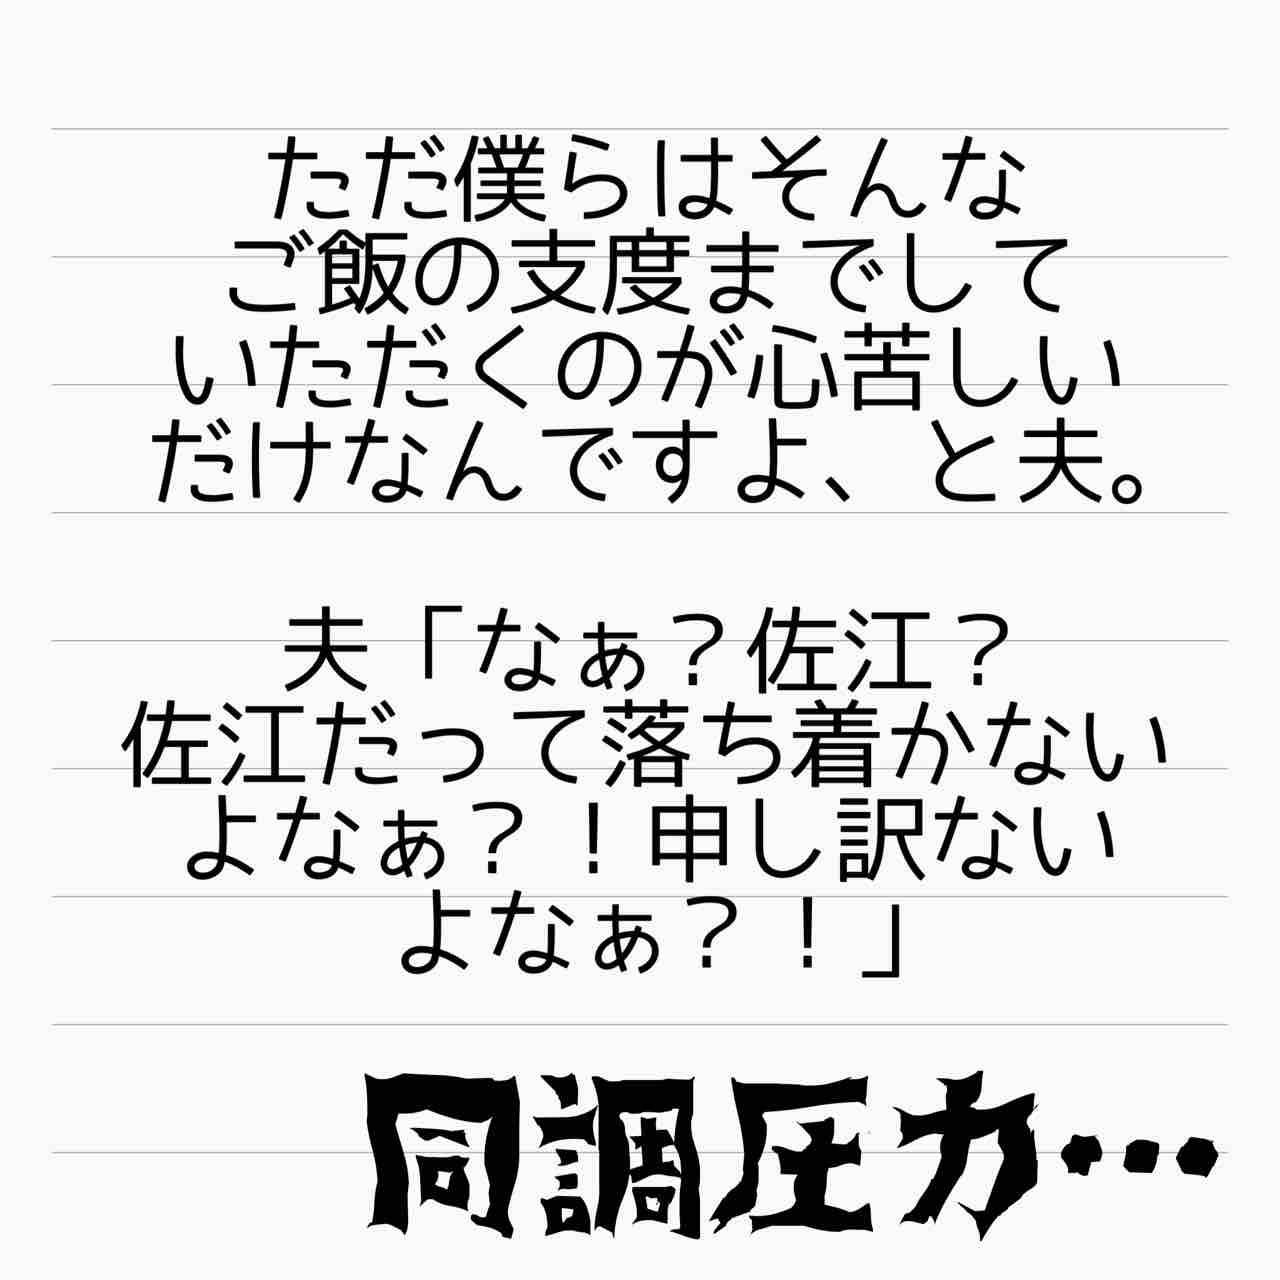 ただ僕らはそんな
ご飯の支度までして
いただくのが心苦しい
だけなんですよ、と夫。
夫「なぁ？佐江？
佐江だって落ち着かない
よなぁ？！申し訳ない
よなぁ？！」
同調圧力…